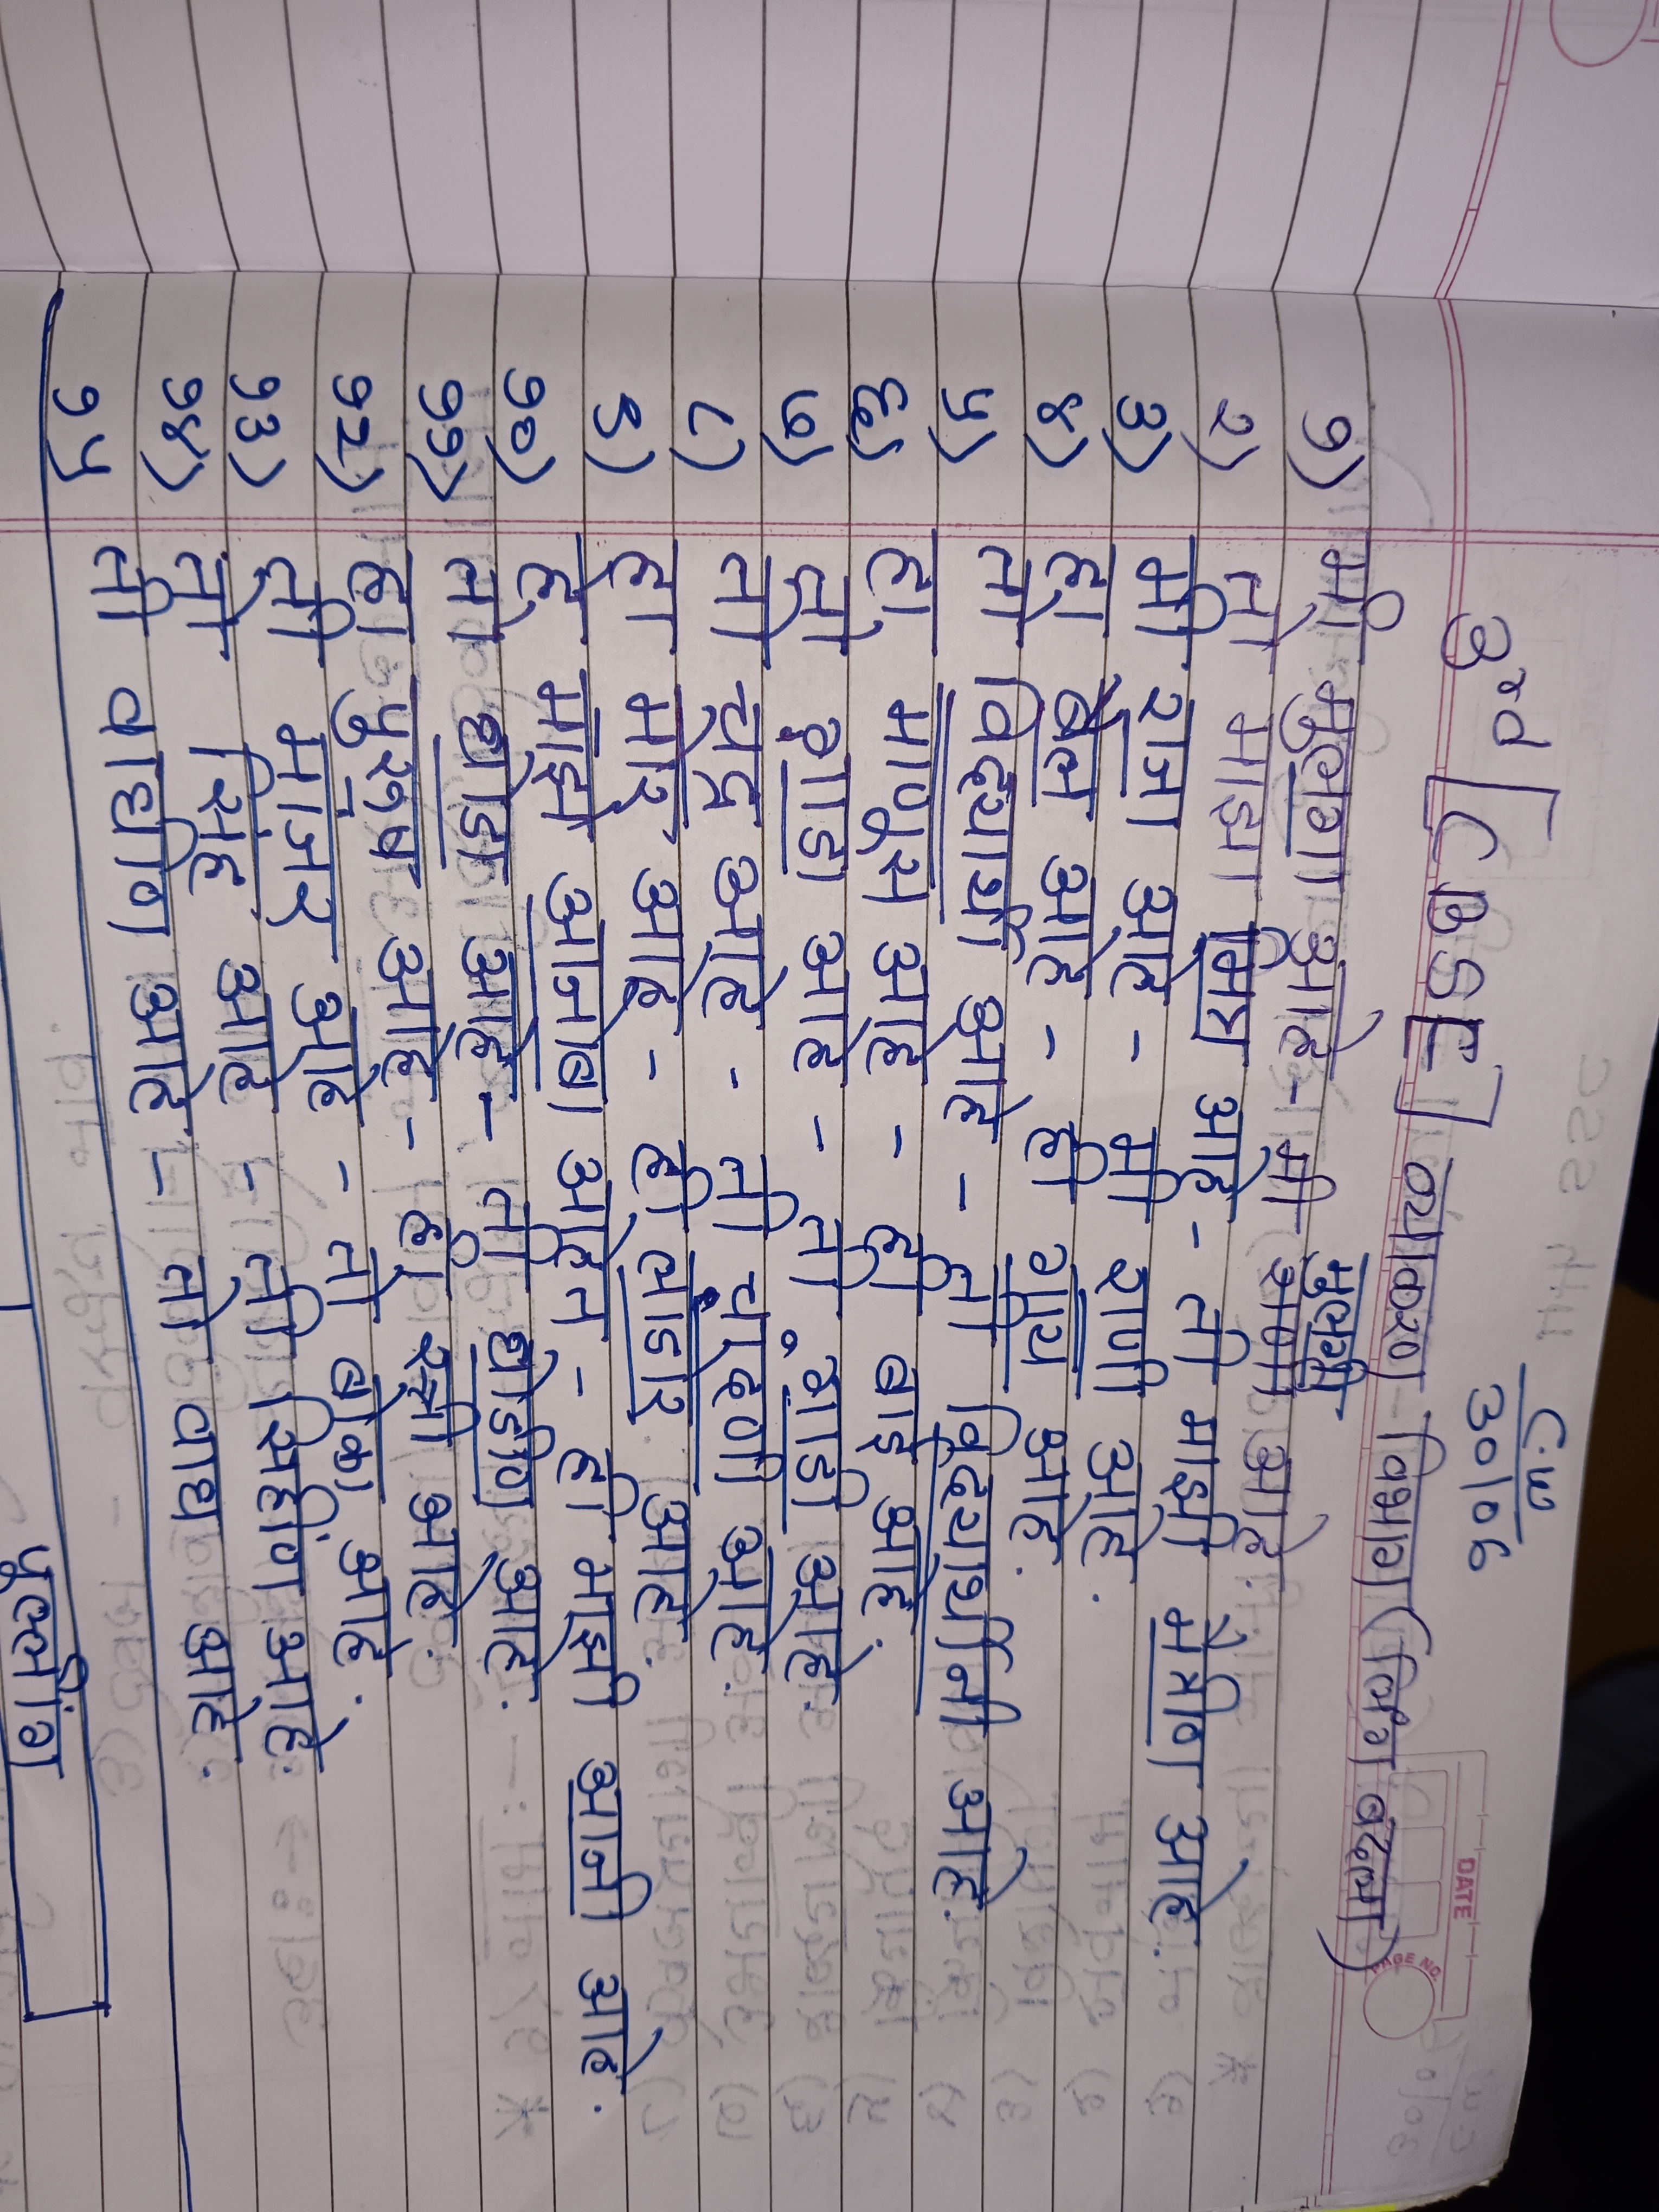 C.W
30/06
DATE
PAGE NO.
3rd [CBSE] व्याकरण - विभाग (लिंग बदला)
१) मी मुलगा आहे - मी मुलगी आहे.
२) तो माझा मित्र आहे - ती माझी मैत्रीण आहे.
३) मी राजा आहे - मी राणी आहे.
४) हा बैल आहे - ही गाय आहे.
५) तो विद्यार्थी आहे - ती विद्यार्थीनी आहे.
६) हा माणूस आहे - ही बाई आहे.
७) तो गाडा आहे - ती गाडी आहे.
८) तो चंद्र आहे - ती चांदणी आहे.
९) हा मोर आहे - ही लांडोर आहे.
१०) हे माझे आजोबा आहेत - ही माझी आजी आहे.
११) तो घोडा आहे - ती घोडीण आहे.
१२) हा पुरुष आहे - ही स्त्री आहे.
१३) ती मांजर आहे - तो बोका आहे.
१४) तो सिंह आहे - ती सिंहीण आहे.
१५ ती वाघीण आहे - तो वाघ आहे.
पुल्लींग